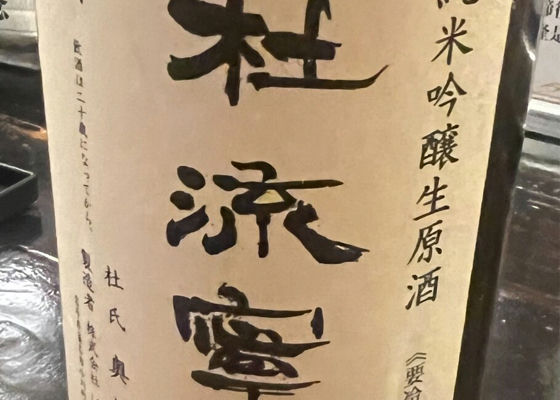 純米吟醸生原酒
《要冷
杜流寧
杜氏奥
飲酒は二十歳になってから。
製造者 株式会社